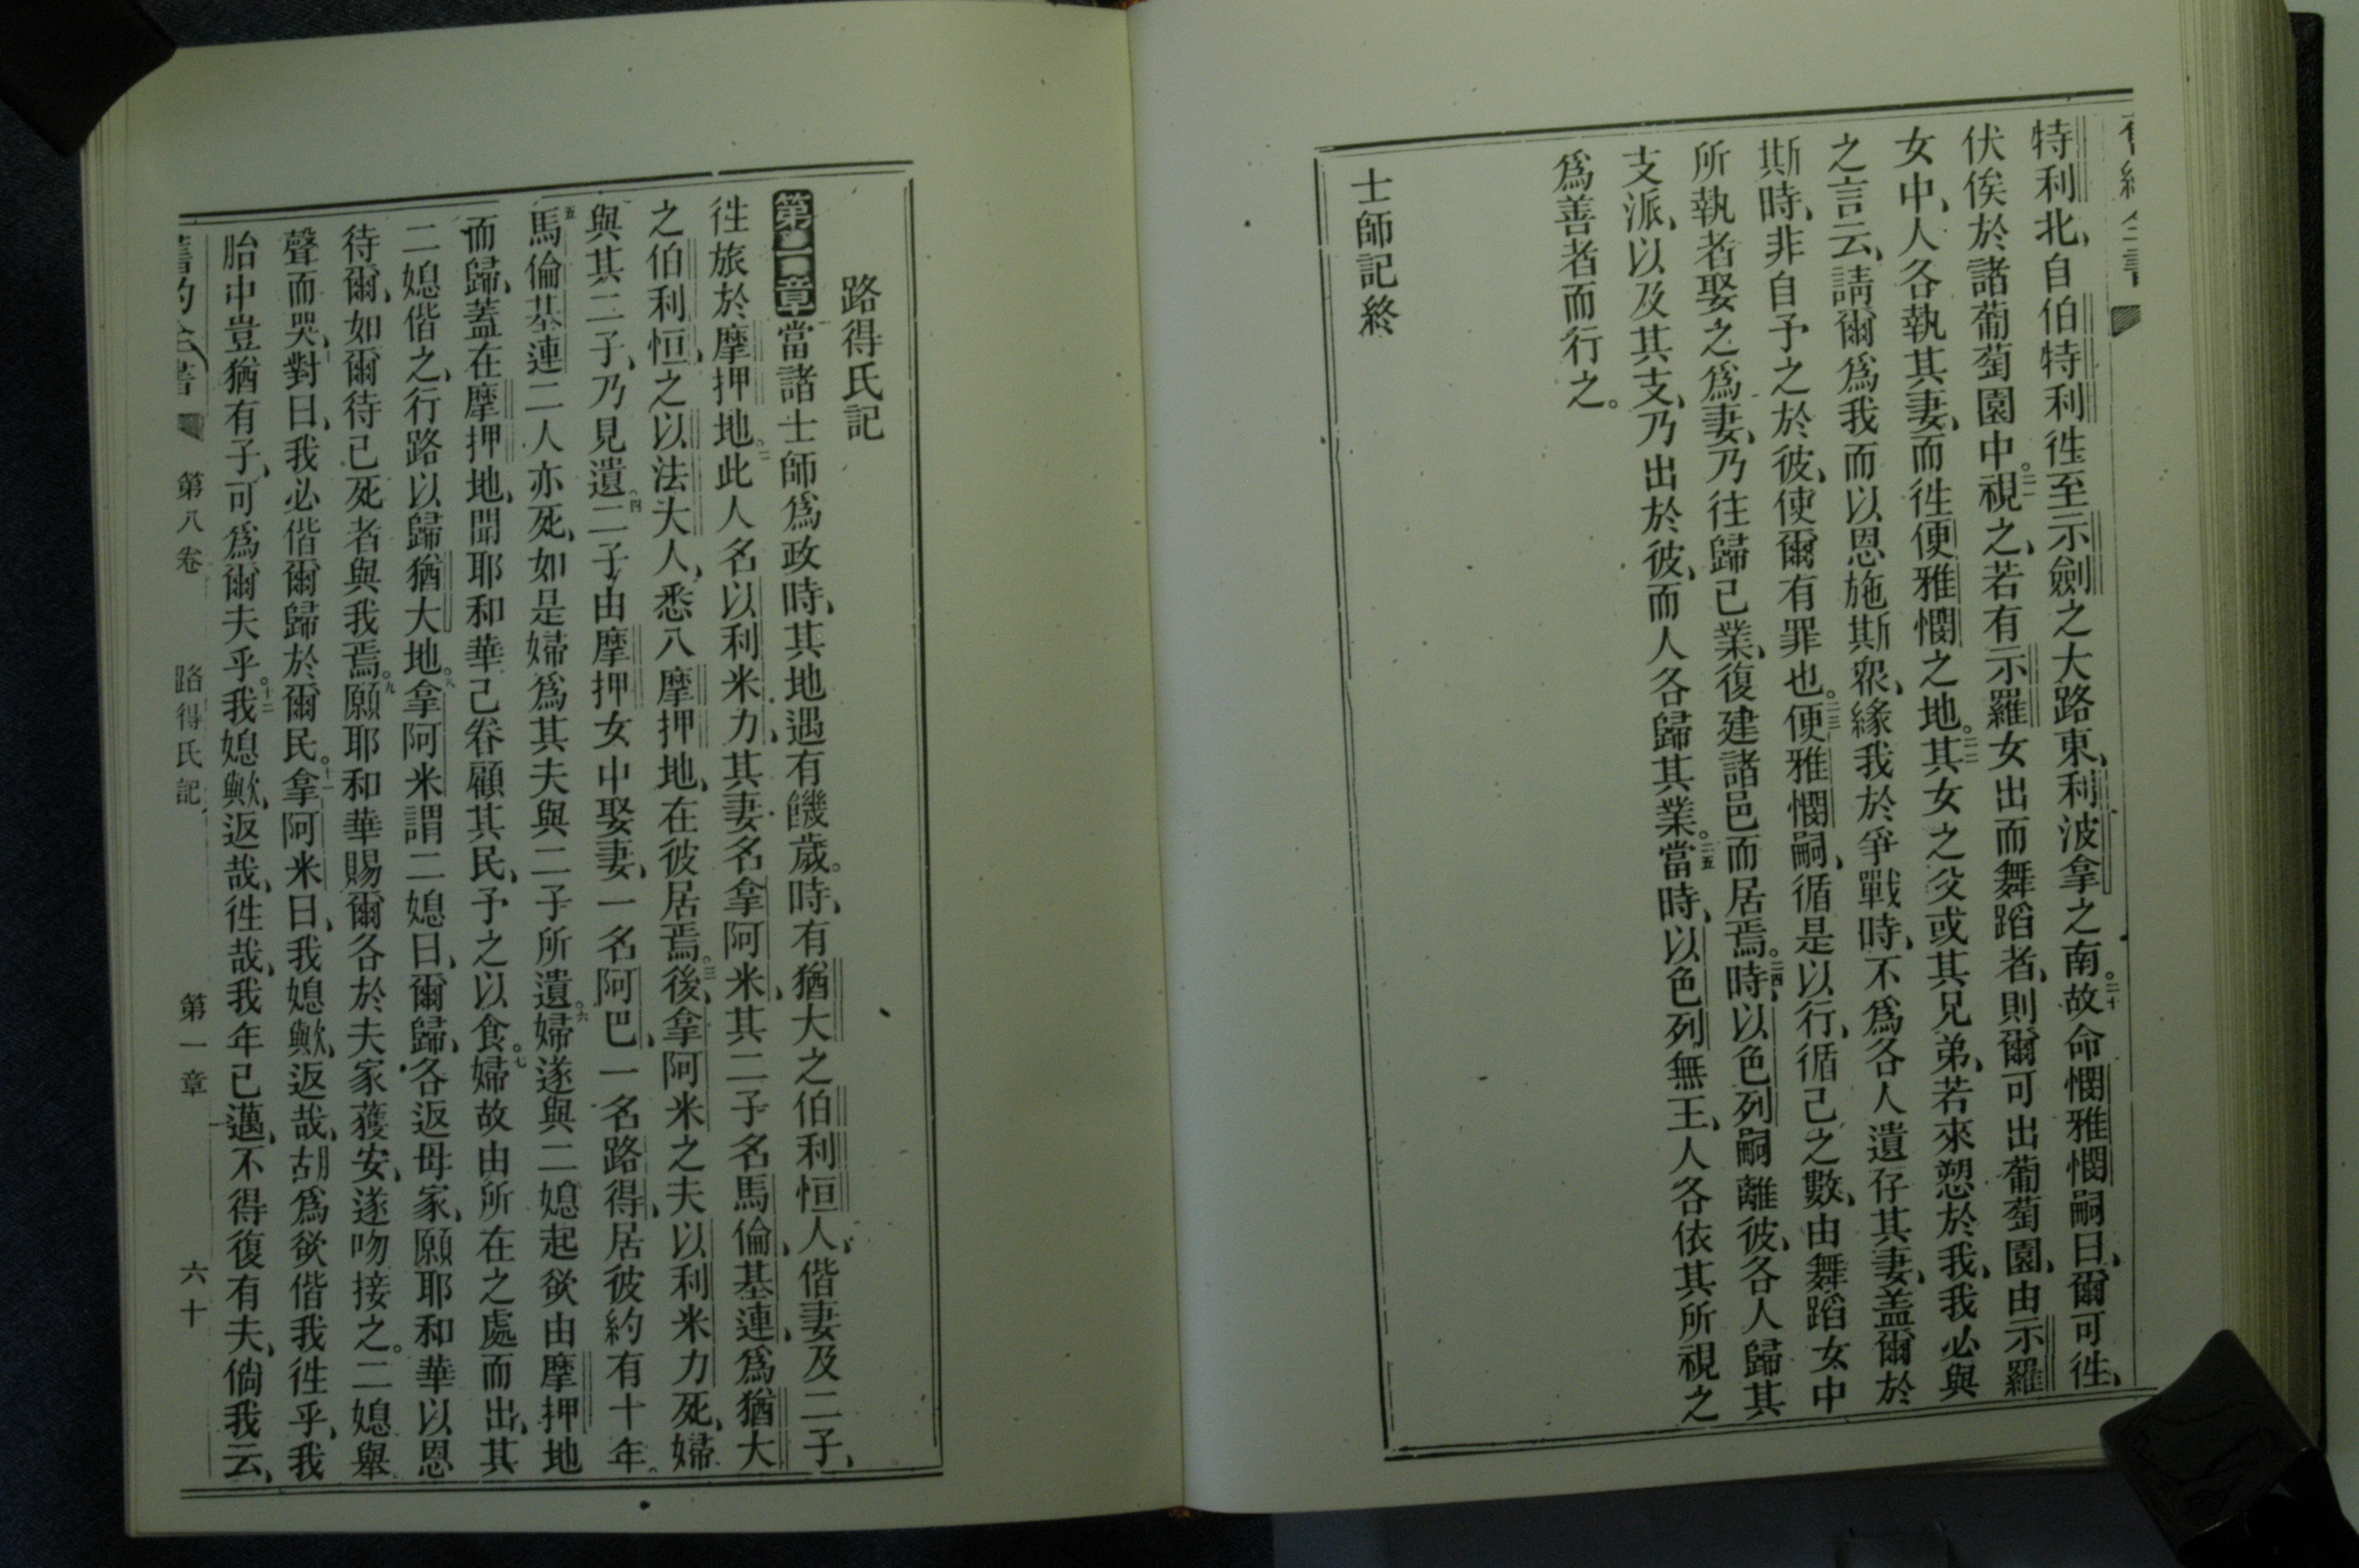 特利北、自伯特利徃至示劍之大路東、利波拿之南。二十故命憫雅憫嗣曰、爾可徃、
伏俟於諸葡萄園中。二一視之、若有示羅女出而舞蹈者、則爾可出葡萄園、由示羅
女中、人各執其妻、而徃便雅憫之地。二二其女之父或其兄弟、若來愬於我、我必與
之言云、請爾爲我而以恩施斯衆、緣我於爭戰時、不爲各人遺存其妻、盖爾於
斯時、非自予之於彼、使爾有罪也。二三便雅憫嗣、循是以行、循己之數、由舞蹈女中
所執者娶之爲妻、乃往歸己業、復建諸邑而居焉。二四時、以色列嗣離彼、各人歸其
支派、以及其支、乃出於彼、而人各歸其業。二五當時、以色列無王、人各依其所視之
爲善者而行之。
士師記終
路得氏記
第一章當諸士師爲政時、其地遇有饑歲。時、有猶大之伯利恒人、偕妻及二子、
徃旅於摩押地。二此人名以利米力、其妻名拿阿米、其二子名馬倫、基連、爲猶大
之伯利恒、之以法大人、悉入摩押地、在彼居焉。三後、拿阿米之夫以利米力死、婦
與其二子、乃見遺。四二子由摩押女中娶妻、一名阿巴、一名路得、居彼約有十年。
五馬倫基連二人亦死、如是婦爲其夫與二子所遺。六婦遂與二媳起欲由摩押地
而歸、蓋在摩押地、聞耶和華己眷顧其民、予之以食。七婦故由所在之處而出、其
二媳偕之、行路以歸猶大地。八拿阿米謂二媳曰、爾歸、各返母家、願耶和華以恩
待爾、如爾待己死者與我焉。九願耶和華賜爾各於夫家獲安、遂吻接之。二媳舉
聲而哭、對曰、我必偕爾歸於爾民。十一拿阿米曰、我媳歟、返哉、胡爲欲偕我徃乎、我
胎中豈猶有子、可爲爾夫乎。十二我媳歟、返哉、徃哉、我年己邁、不得復有夫、倘我云、
舊約全書 第八卷 路得氏記 第一章 六十